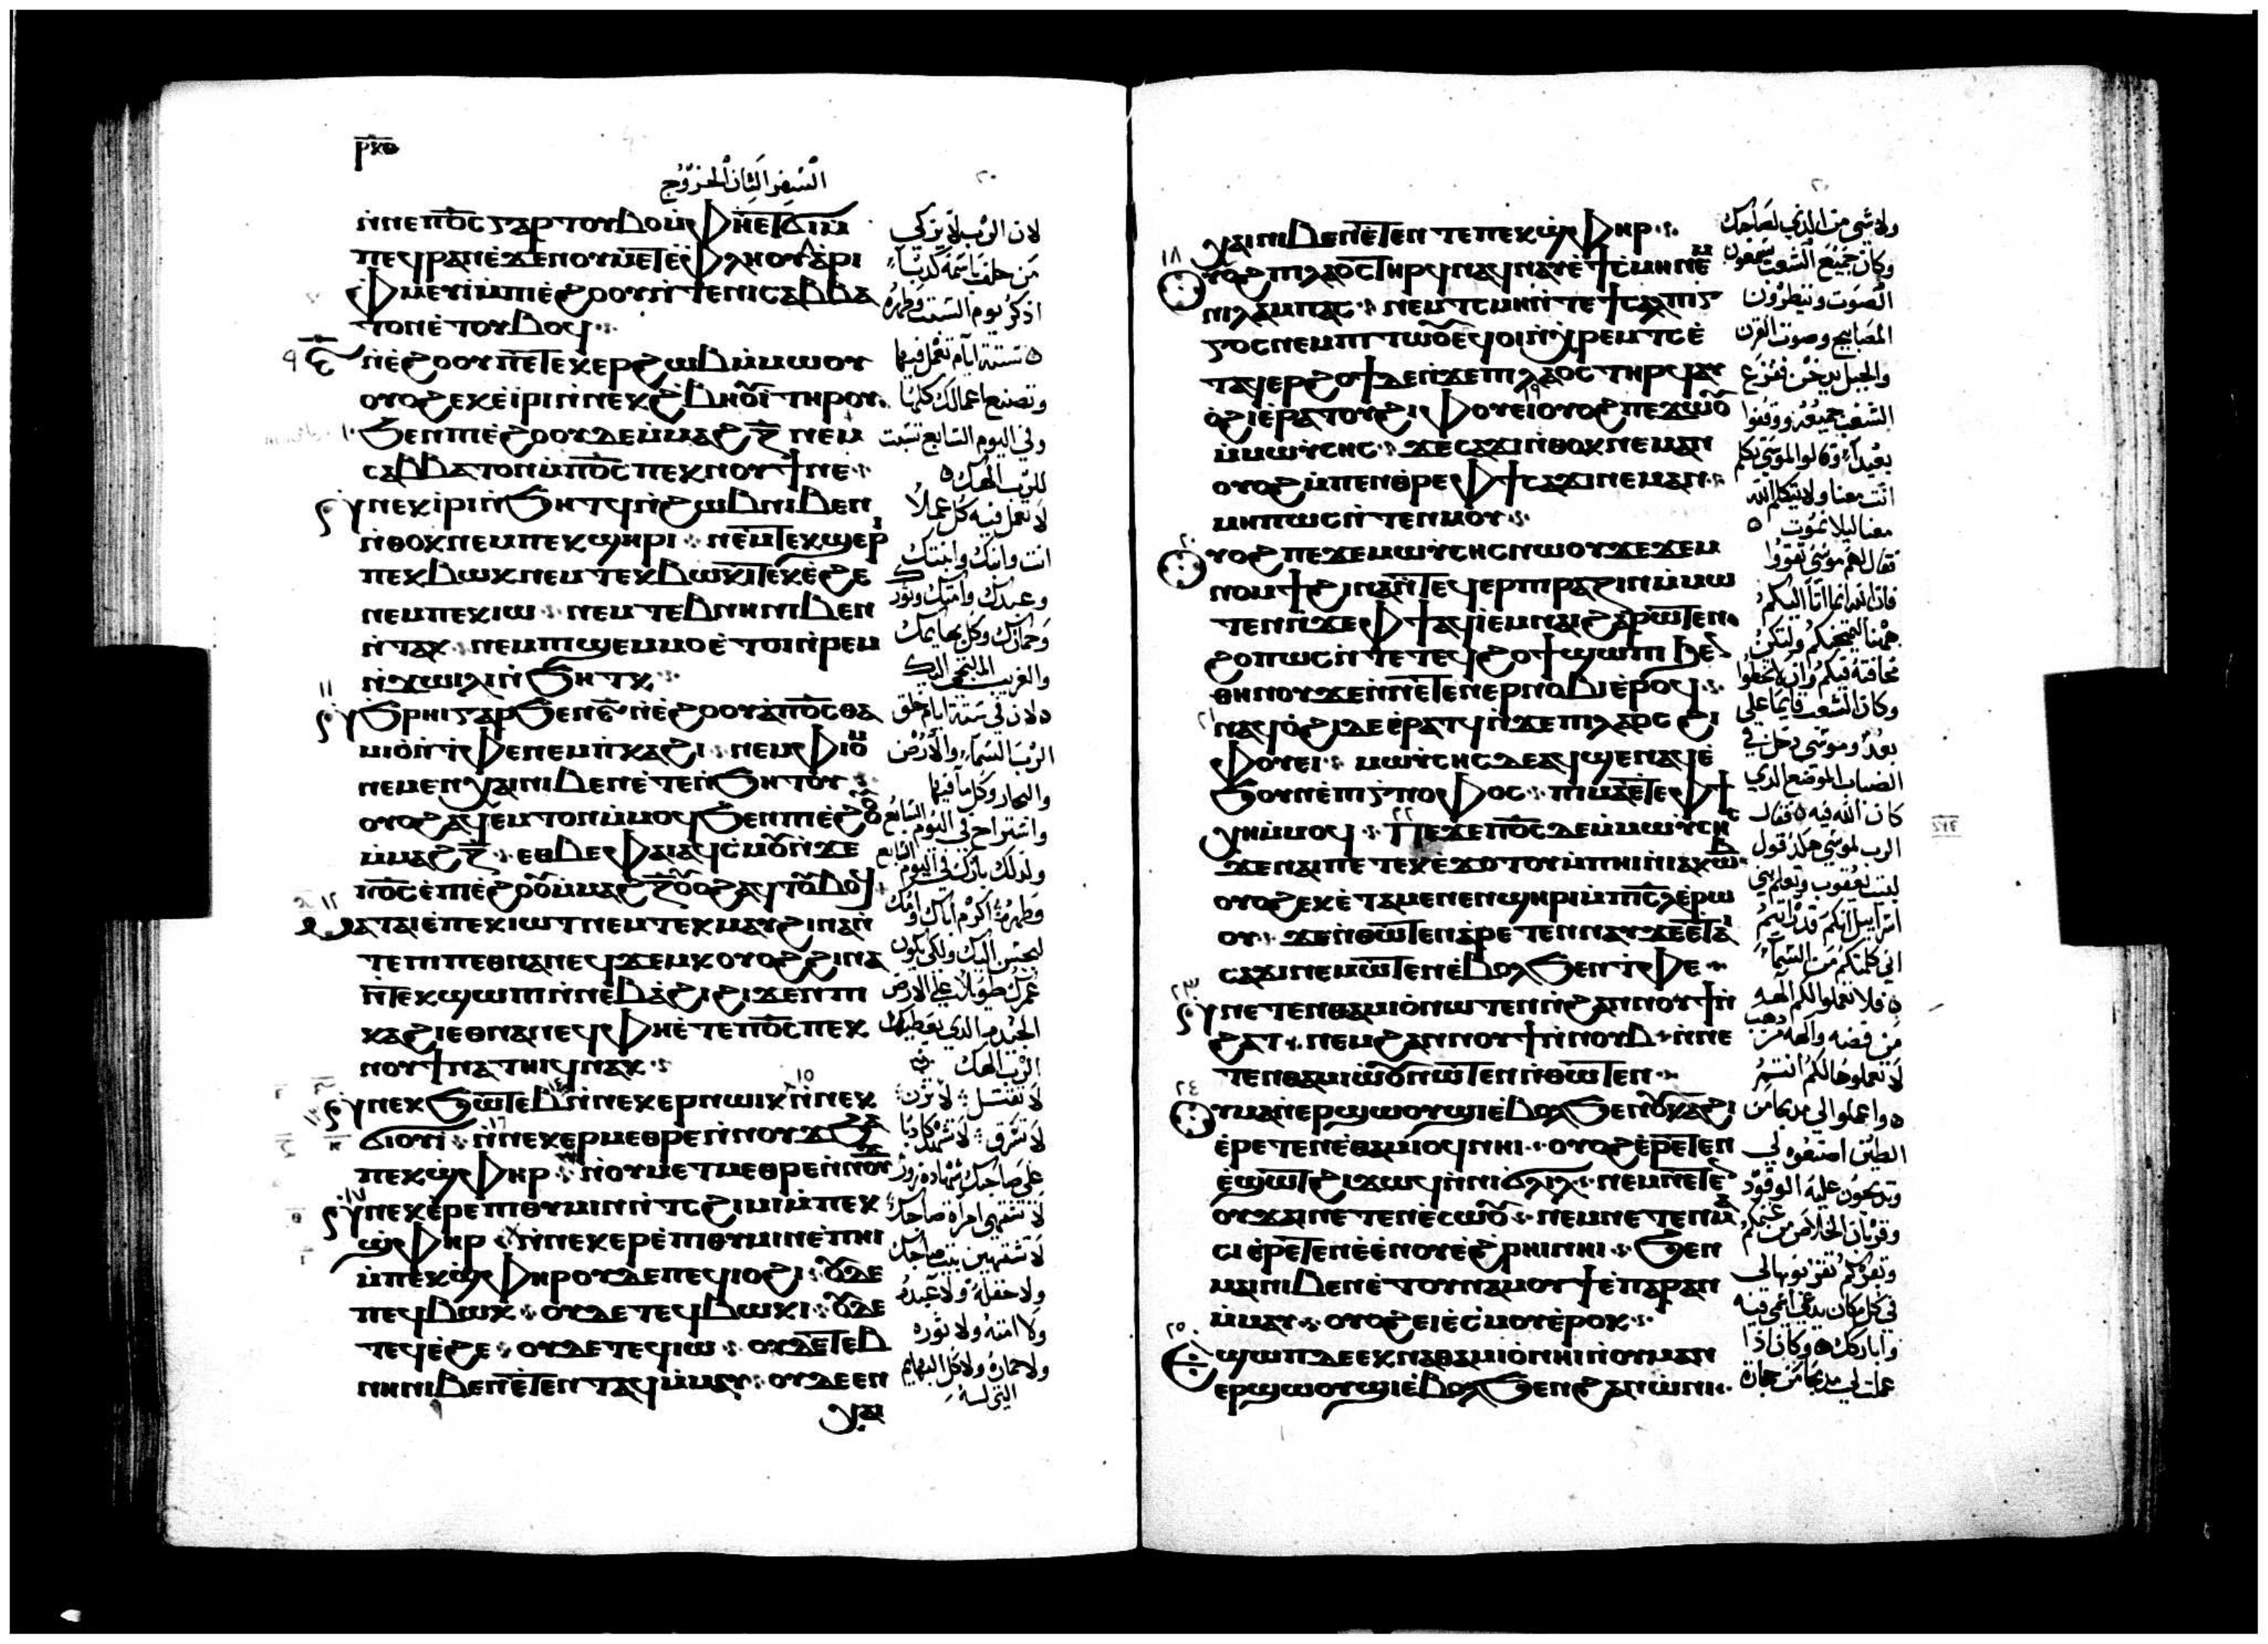 ⲣⲕⲑ
السفر الثانى الخروج
ⲛ̀ⲛⲉⲡⲟ̅ⲥ̅ ⲅⲁⲣ ⲧⲟⲩⲃⲟ ⲙ̀ⲫⲏⲉⲧϭⲓ ⲙ̀
ⲡⲉϥⲣⲁⲛ ⲉ̀ϫⲉⲛ ⲟⲩⲙⲉⲧⲉ̀ⲫⲗⲏⲟⲩ ⲁ̀ⲣⲓ
ⲫ̀ⲙⲉⲩⲓ̀ ⲙ̀ⲡⲓⲉ̀ϩⲟⲟⲩ ⲛ̀ⲧⲉ ⲛⲓⲥⲁⲃⲃⲁ
ⲧⲟⲛ ⲉ̀ⲧⲟⲩⲃⲟϥ
ⲋ̅ ⲛ̀ⲉ̀ϩⲟⲟⲩ ⲛ̀ⲉⲧⲉⲕⲉⲣϩⲱⲃ ⲙ̀ⲙⲱⲟⲩ
ⲟⲩⲟϩ ⲉⲕⲉ̀ⲓ̀ⲣⲓ ⲛ̀ⲛⲉⲕϩ̀ⲃⲏⲟⲩⲓ̀ ⲧⲏⲣⲟⲩ
ϧⲉⲛ ⲡⲓⲉ̀ϩⲟⲟⲩ ⲇⲉ ⲙ̀ⲙⲁϩ ⲍ̅ ⲛⲉⲙ
ⲥⲁⲃⲃⲁⲧⲟⲛ ⲙ̀ⲡⲟ̅ⲥ̅ ⲡⲉⲕⲛⲟⲩϯ ⲛⲉ
ⲛ̀ⲛⲉⲕⲓ̀ⲣⲓ ⲛ̀ϧⲏⲧϥ ⲛ̀ϩⲱⲃ ⲛⲓⲃⲉⲛ
ⲛ̀ⲑⲟⲕ ⲛⲉⲙ ⲡⲉⲕϣⲏⲣⲓ ⲛⲉⲙ ⲧⲉⲕϣⲉⲣⲓ
ⲡⲉⲕⲃⲱⲕ ⲛⲉⲙ ⲧⲉⲕⲃⲱⲕⲓ ⲡⲉⲕⲉ̀ϩⲉ
ⲛⲉⲙ ⲡⲉⲕⲓⲱ ⲛⲉⲙ ⲧⲉⲃⲛⲏ ⲛⲓⲃⲉⲛ
ⲛ̀ⲧⲁⲕ ⲛⲉⲙ ⲡⲓϣⲉⲙⲙⲟ ⲉ̀ⲧⲟⲓ ⲛ̀ⲣⲉⲙ
ⲛ̀ϫⲱⲓⲗⲓ ⲛ̀ϧⲏⲧⲕ
ϧ̀ⲣⲏⲓ ⲅⲁⲣ ϧⲉⲛ ⲋ̅ ⲛ̀ⲉ̀ϩⲟⲟⲩ ⲁ̀ⲡⲟ̅ⲥ̅ ⲑⲁ
ⲙⲓⲟ̀ ⲛ̀ⲧ̀ⲫⲉ ⲛⲉⲙ ⲡ̀ⲕⲁϩⲓ ⲛⲉⲙ ⲫ̀ⲓⲟⲙ
ⲛⲉⲙ ⲉⲛⲭⲁⲓ ⲛⲓⲃⲉⲛ ⲉ̀ⲧⲉⲛ̀ϧⲏⲧⲟⲩ
ⲟⲩⲟϩ ⲁϥⲉⲙⲧⲟⲛ ⲙ̀ⲙⲟϥ ϧⲉⲛ ⲡⲓⲉ̀ϩⲟⲟⲩ
ⲙ̀ⲙⲁϩ ⲍ̅ ⲉⲑⲃⲉⲫⲁⲓ ⲁϥⲥ̀ⲙⲟⲩ ⲛ̀ϫⲉ
ⲡⲟ̅ⲥ̅ ⲉ̀ⲡⲓⲉ̀ϩⲟⲟⲩ ⲙ̀ⲙⲁϩ ⲍ̅ ⲟⲩⲟϩ ⲁϥⲧⲟⲩⲃⲟϥ
ⲙⲁⲧⲁⲓⲉ̀ ⲡⲉⲕⲓⲱⲧ ⲛⲉⲙ ⲧⲉⲕⲙⲁⲩ ϩⲓⲛⲁ ⲛ̀
ⲧⲉ ⲡⲓⲡⲉⲑⲛⲁⲛⲉϥ ϫⲉⲙⲕ ⲟⲩⲟϩ ϩⲓⲛⲁ
ⲛ̀ⲧⲉⲕϣⲱⲡⲓ ⲛ̀ⲛⲉⲃⲁ̀ϩⲓ ϩⲓϫⲉⲛ ⲡⲓ
ⲕⲁϩⲓ ⲉⲑⲛⲁⲛⲉϥ ⲫⲏⲉ̀ⲧⲉ ⲡⲟ̅ⲥ̅ ⲡⲉⲕ
ⲛⲟⲩϯ ⲛⲁⲧⲏⲓϥ ⲛⲁⲕ
ⲛ̀ⲛⲉⲕϧⲱⲧⲉⲃ ⲛ̀ⲛⲉⲕⲉⲣⲛⲱⲓⲕ ⲛ̀ⲛⲉⲕ
ϭⲓⲟⲩⲓ̀ ⲛ̀ⲛⲉⲕⲉⲣⲙⲉⲑⲣⲉ ⲛ̀ⲛⲟⲩϫ ϧⲁ
ⲡⲉⲕϣ̀ⲫⲏⲣ ⲛ̀ⲟⲩⲙⲉⲧⲙⲉⲑⲣⲉ ⲛ̀ⲛⲟⲩϫ
ⲛ̀ⲛⲉⲕⲉ̀ⲣⲉⲡⲓⲑⲩⲙⲓⲛ ⲛ̀ⲧⲥϩⲓⲙⲓ ⲙ̀ⲡⲉⲕ
ϣ̀ⲫⲏⲣ ⲛ̀ⲛⲉⲕⲉⲣⲉ̀ⲡⲓⲑⲩⲙⲓⲛ ⲉ̀ⲡⲏⲓ
ⲙ̀ⲡⲉⲕϣ̀ⲫⲏⲣ ⲟⲩⲇⲉ ⲡⲉϥⲓⲟϩⲓ ⲟⲩⲇⲉ
ⲡⲉϥⲃⲱⲕ ⲟⲩⲇⲉ ⲧⲉϥⲃⲱⲕⲓ ⲟⲩⲇⲉ
ⲧⲉϥⲉ̀ϩⲉ ⲟⲩⲇⲉ ⲡⲉϥⲓⲱ ⲟⲩⲇⲉ ⲧⲉⲃ
ⲛⲏ ⲛⲓⲃⲉⲛ ⲉ̀ⲧⲉⲛⲧⲁϥ ⲙ̀ⲙⲁⲩ ⲟⲩⲇⲉ ⲉⲛ
ⲭⲁⲓ
لان الرب لا يزكي
من حلف باسمه كذبًا
اذكر يوم السبت وطهره
ستة ايام تعمل فيها
وتصنع اعمالك كلها
وفي اليوم السابع سبت
للرب الهك
لا تعمل فيه كل عملا
انت وابنك وابنتك
وعبدك وامتك وثورك
وحمارك وكل بهايمك
والغريب الملتجى اليك
لان في ستة ايام خلق
الرب السماء والارض
والبحار وكل ما فيها
واستراح في اليوم السابع
ولذلك بارك في اليوم السابع
وطهره اكرم اباك وامك
ليحسن اليك ولكي يكون
عمرك طويلا على الارض
الجيدة الذي يعطيك
الرب الهك
لا تقتل لا تزن
لا تسرق لا تشهد كاذبًا
على صاحبك شهادة زور
لا تشتهي امراة صاحبك
لا تشتهين بيت صاحبك
ولا حقله ولا عبده
ولا امته ولا ثوره
ولا حماره ولا كل البهايم
التي له
ⲭⲁⲓ ⲛⲓⲃⲉⲛ ⲉ̀ⲧⲉⲛⲧⲉ ⲡⲉⲕϣ̀ⲫⲏⲣ
ⲟⲩⲟϩ ⲡⲓⲗⲁⲟⲥ ⲧⲏⲣϥ ⲛⲁϥⲛⲁⲩ ⲉ̀ϯⲥ̀ⲙⲏ ⲛⲉⲙ
ⲛⲓⲗⲁⲙⲡⲁⲥ ⲛⲉⲙ ⲧⲥⲙⲏ ⲛ̀ⲧⲉ ϯⲥⲁⲗⲡⲓⲅ
ⲅⲟⲥ ⲛⲉⲙ ⲡⲓⲧⲱⲟⲩ ⲉϥⲟⲓ ⲛ̀ⲭⲣⲉⲙⲧⲥ ⲉ̀
ⲧⲁϥⲉⲣϩⲟϯ ⲇⲉ ⲛ̀ϫⲉ ⲡⲓⲗⲁⲟⲥ ⲧⲏⲣϥ ⲁⲩ
ⲟ̀ϩⲓ ⲉ̀ⲣⲁⲧⲟⲩ ϩⲓ ⲫⲟⲩⲉⲓ ⲟⲩⲟϩ ⲡⲉϫⲱⲟⲩ
ⲙ̀ⲙⲱⲩ̀ⲥⲏⲥ ϫⲉ ⲥⲁϫⲓ ⲛ̀ⲑⲟⲕ ⲛⲉⲙⲁⲛ
ⲟⲩⲟϩ ⲙ̀ⲡⲉⲛⲑⲣⲉ ⲫϯ ⲥⲁϫⲓ ⲛⲉⲙⲁⲛ
ⲙⲏⲡⲱⲥ ⲛ̀ⲧⲉⲛⲙⲟⲩ
ⲟⲩⲟϩ ⲡⲉϫⲉ ⲙⲱⲩ̀ⲥⲏⲥ ⲛⲱⲟⲩ ϫⲉ ϫⲉⲙ
ⲛⲟⲙϯ ϩⲓⲛⲁ ⲛ̀ⲧⲉϥⲉⲣⲡⲓⲣⲁⲍⲓⲛ ⲙ̀ⲙⲱ
ⲧⲉⲛ ⲛ̀ϫⲉ ⲫϯ ⲁϥⲓ̀ ⲉⲙⲛⲁⲓ ϩⲁⲣⲱⲧⲉⲛ
ϩⲟⲡⲱⲥ ⲛ̀ⲧⲉ ⲧⲉϥϩⲟϯ ϣⲱⲡⲓ ϧⲉⲛ
ⲑⲏⲛⲟⲩ ϫⲉ ⲛ̀ⲛⲉⲧⲉⲛⲉⲣⲛⲟⲃⲓ ⲉ̀ⲣⲟϥ
ⲛⲁϥⲟ̀ϩⲓ ⲇⲉ ⲉ̀ⲣⲁⲧϥ ⲛ̀ϫⲉ ⲡⲓⲗⲁⲟⲥ ϩⲓ
ⲫⲟⲩⲉⲓ ⲙⲱⲩ̀ⲥⲏⲥ ⲇⲉ ⲁϥϣⲉⲛⲁϥ ⲉ̀
ϧⲟⲩⲛ ⲉ̀ⲡⲓⲅⲛⲟⲫⲟⲥ ⲡⲓⲙⲁ ⲉ̀ⲧⲉ ⲫϯ
ⲭⲏ ⲙ̀ⲙⲟϥ ⲡⲉϫⲉ ⲡⲟ̅ⲥ̅ ⲇⲉ ⲙ̀ⲙⲱⲩ̀ⲥⲏⲥ
ϫⲉ ⲛⲁⲓ ⲡⲉⲧⲉⲕⲉ̀ϫⲟⲧⲟⲩ ⲙ̀ⲡⲏⲓ ⲛ̀ⲓⲁⲕⲱⲃ
ⲟⲩⲟϩ ⲉⲕⲉ̀ⲧⲁⲙⲉ ⲛⲉⲛϣⲏⲣⲓ ⲙ̀ⲡⲓⲥ̅ⲗ̅ ⲉ̀ⲣⲱ
ⲟⲩ ϫⲉ ⲛ̀ⲑⲱⲧⲉⲛ ⲁ̀ⲣⲉⲧⲉⲛⲛⲁⲩ ϫⲉ ⲉⲧⲁⲓ
ⲥⲁϫⲓ ⲛⲉⲙⲱⲧⲉⲛ ⲉ̀ⲃⲟⲗ ϧⲉⲛ ⲧ̀ⲫⲉ
ⲛ̀ⲛⲉⲧⲉⲛⲑⲁⲙⲓⲟ̀ ⲛⲱⲧⲉⲛ ⲛ̀ϩⲁⲛⲛⲟⲩϯ ⲛ̀
ϩⲁⲧ ⲛⲉⲙ ϩⲁⲛⲛⲟⲩϯ ⲛ̀ⲛⲟⲩⲃ ⲛ̀ⲛⲉ
ⲧⲉⲛⲑⲁⲙⲓⲱⲟⲩ ⲛⲱⲧⲉⲛ ⲛ̀ⲑⲱⲧⲉⲛ
ⲟⲩⲙⲁⲛ̀ⲉⲣϣⲱⲟⲩϣⲓ ⲉ̀ⲃⲟⲗ ϧⲉⲛ ⲟⲩⲕⲁϩⲓ
ⲉ̀ⲣⲉⲧⲉⲛⲉ̀ⲑⲁⲙⲓⲟϥ ⲛⲏⲓ ⲟⲩⲟϩ ⲉ̀ⲣⲉⲧⲉⲛ
ⲉ̀ϣⲱⲧ ϩⲓϫⲱϥ ⲛ̀ⲛⲓϭⲗⲓⲗ ⲛⲉⲙ ⲛⲉⲧⲉⲛ
ⲟⲩϫⲁⲓ ⲛⲉⲧⲉⲛⲉ̀ⲥⲱⲟⲩ ⲛⲉⲙ ⲛⲉⲧⲉⲛⲙⲁ
ⲥⲓ ⲉ̀ⲣⲉⲧⲉⲛⲉ̀ⲉ̀ⲛⲟⲩ ⲉ̀ϩ̀ⲣⲏⲓ ⲛⲏⲓ ϧⲉⲛ
ⲙⲁⲓ ⲛⲓⲃⲉⲛ ⲉ̀ⲧⲟⲩⲛⲁⲙⲟⲩϯ ⲉ̀ⲡⲁⲣⲁⲛ
ⲙ̀ⲙⲁⲩ ⲟⲩⲟϩ ⲉⲓⲉ̀ⲥ̀ⲙⲟⲩ ⲉ̀ⲣⲟⲕ
ⲉϣⲱⲡ ⲇⲉ ⲉⲕⲛⲁⲑⲁⲙⲓⲟ̀ ⲛⲏⲓ ⲛ̀ⲟⲩⲙⲁⲛ
ⲉⲣϣⲱⲟⲩϣⲓ ⲉ̀ⲃⲟⲗ ϧⲉⲛ ϩⲁⲛⲱ̀ⲛⲓ
ولا شي من الذي لصاحبك
وكان جميع الشعب يسمعون
الصوت وينظرون
المصابيح وصوت القرن
والجبل يدخن ففزع
الشعب جميعه ووقفوا
بعيدا وقالوا لموسى تكلم
انت معنا ولا يتكلم الله
معنا ليلا نموت
فقال لهم موسى تقووا
فان الله انما اتا اليكم
ههنا ليمتحنكم ولتكن
مخافته فيكم وان لا تخطوا
وكان الشعب قايما على
بعد وموسى دخل في
الضباب الموضع الذي
كان الله فيه فقال
الرب لموسى هكذا قول
لبيت يعقوب وتعلم بني
اسراييل انكم قد رايتم
اني كلمتكم من السماء
فلا تعملوا لكم الهة
من فضه والهة من ذهب
لا تعملوها لكم انتم
واعملوا لي مذبحا من
الطين اصنعوه لي
وتذبحون عليه الوقود
وقربان الخلاص من غنمكم
وبقركم تقربونها لي
في كل مكان يدعى اسمي فيه
واباركك وكان اذا
عملت لي مذبحا من حجارة